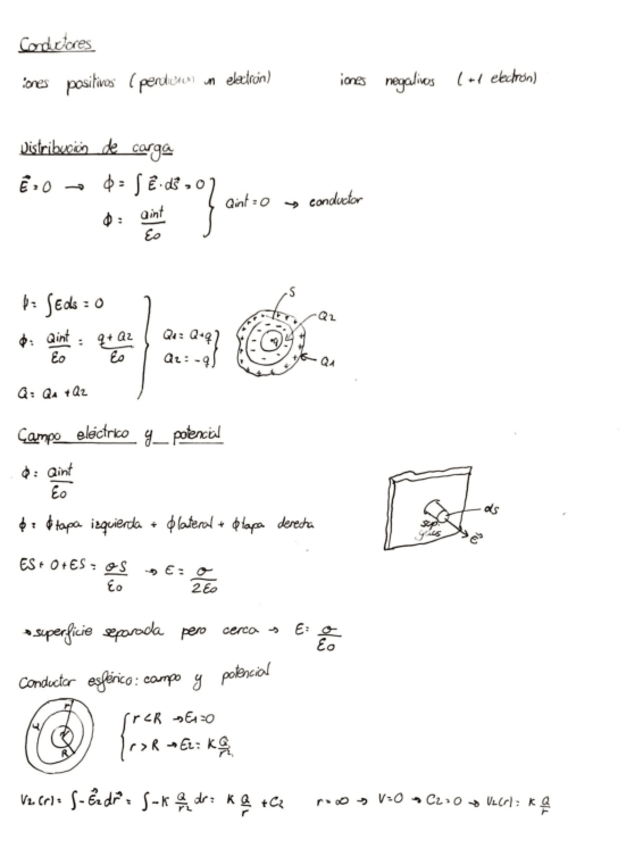 Conductores
iones positivos (perdieron un electrón) iones negativos (+1 electrón)
Distribución de carga
E⃗=0 → ϕ = ∫ E⃗·ds⃗ = 0
ϕ = Qint/ε0 } Qint = 0 → conductor
ϕ = ∫Eds = 0
ϕ = Qint/ε0 = (q + Q2)/ε0 } Q1 = Q+q Q2 = -q}
Q = Q1 + Q2
S
Q2
q
Q1
Campo eléctrico y potencial
ϕ = Qint/ε0
ϕ = ϕtapa izquierda + ϕlateral + ϕtapa derecha
ds
sup.
E⃗
ES + 0 + ES = σS/ε0 → E = σ/2ε0
→ superficie separada pero cerca → E = σ/ε0
Conductor esférico: campo y potencial
r
R
{ r < R → E1=0
r > R → E2 = K Q/r²
V2(r) = ∫-E⃗2 dr⃗ = ∫-K Q/r² dr = K Q/r + C2 r=∞ → V=0 → C2=0 → V2(r) = K Q/r